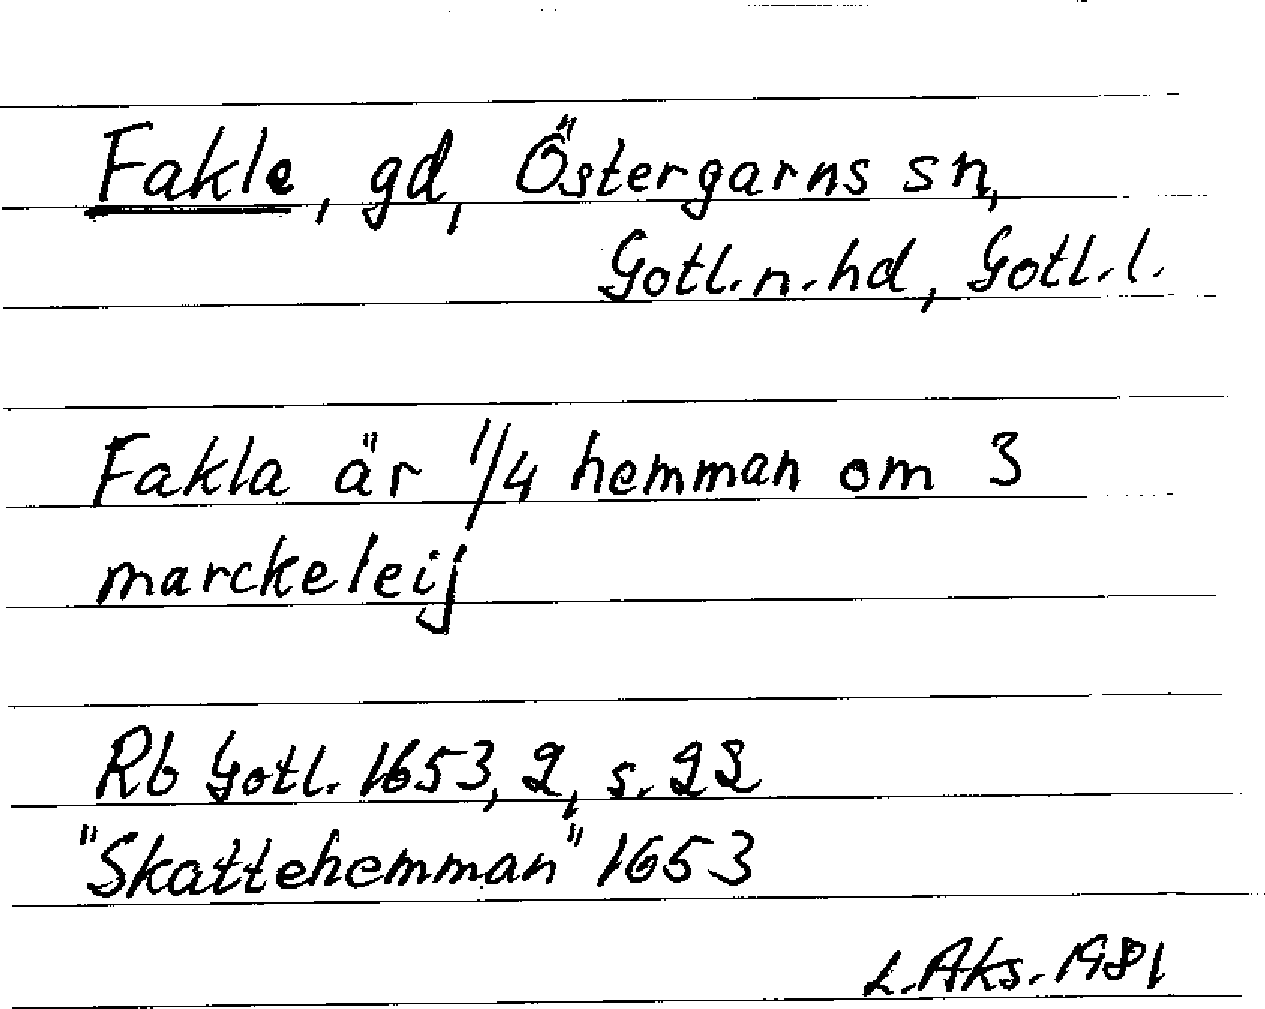 Fakle, gd, Östergarns sn,
Gotl.n.hd, Gotl.l.
Fakla är 1/4 hemman om 3
marckeleij
Rb Gotl. 1653, 2, s. 22
"Skattehemman" 1653
L.Aks. 1981